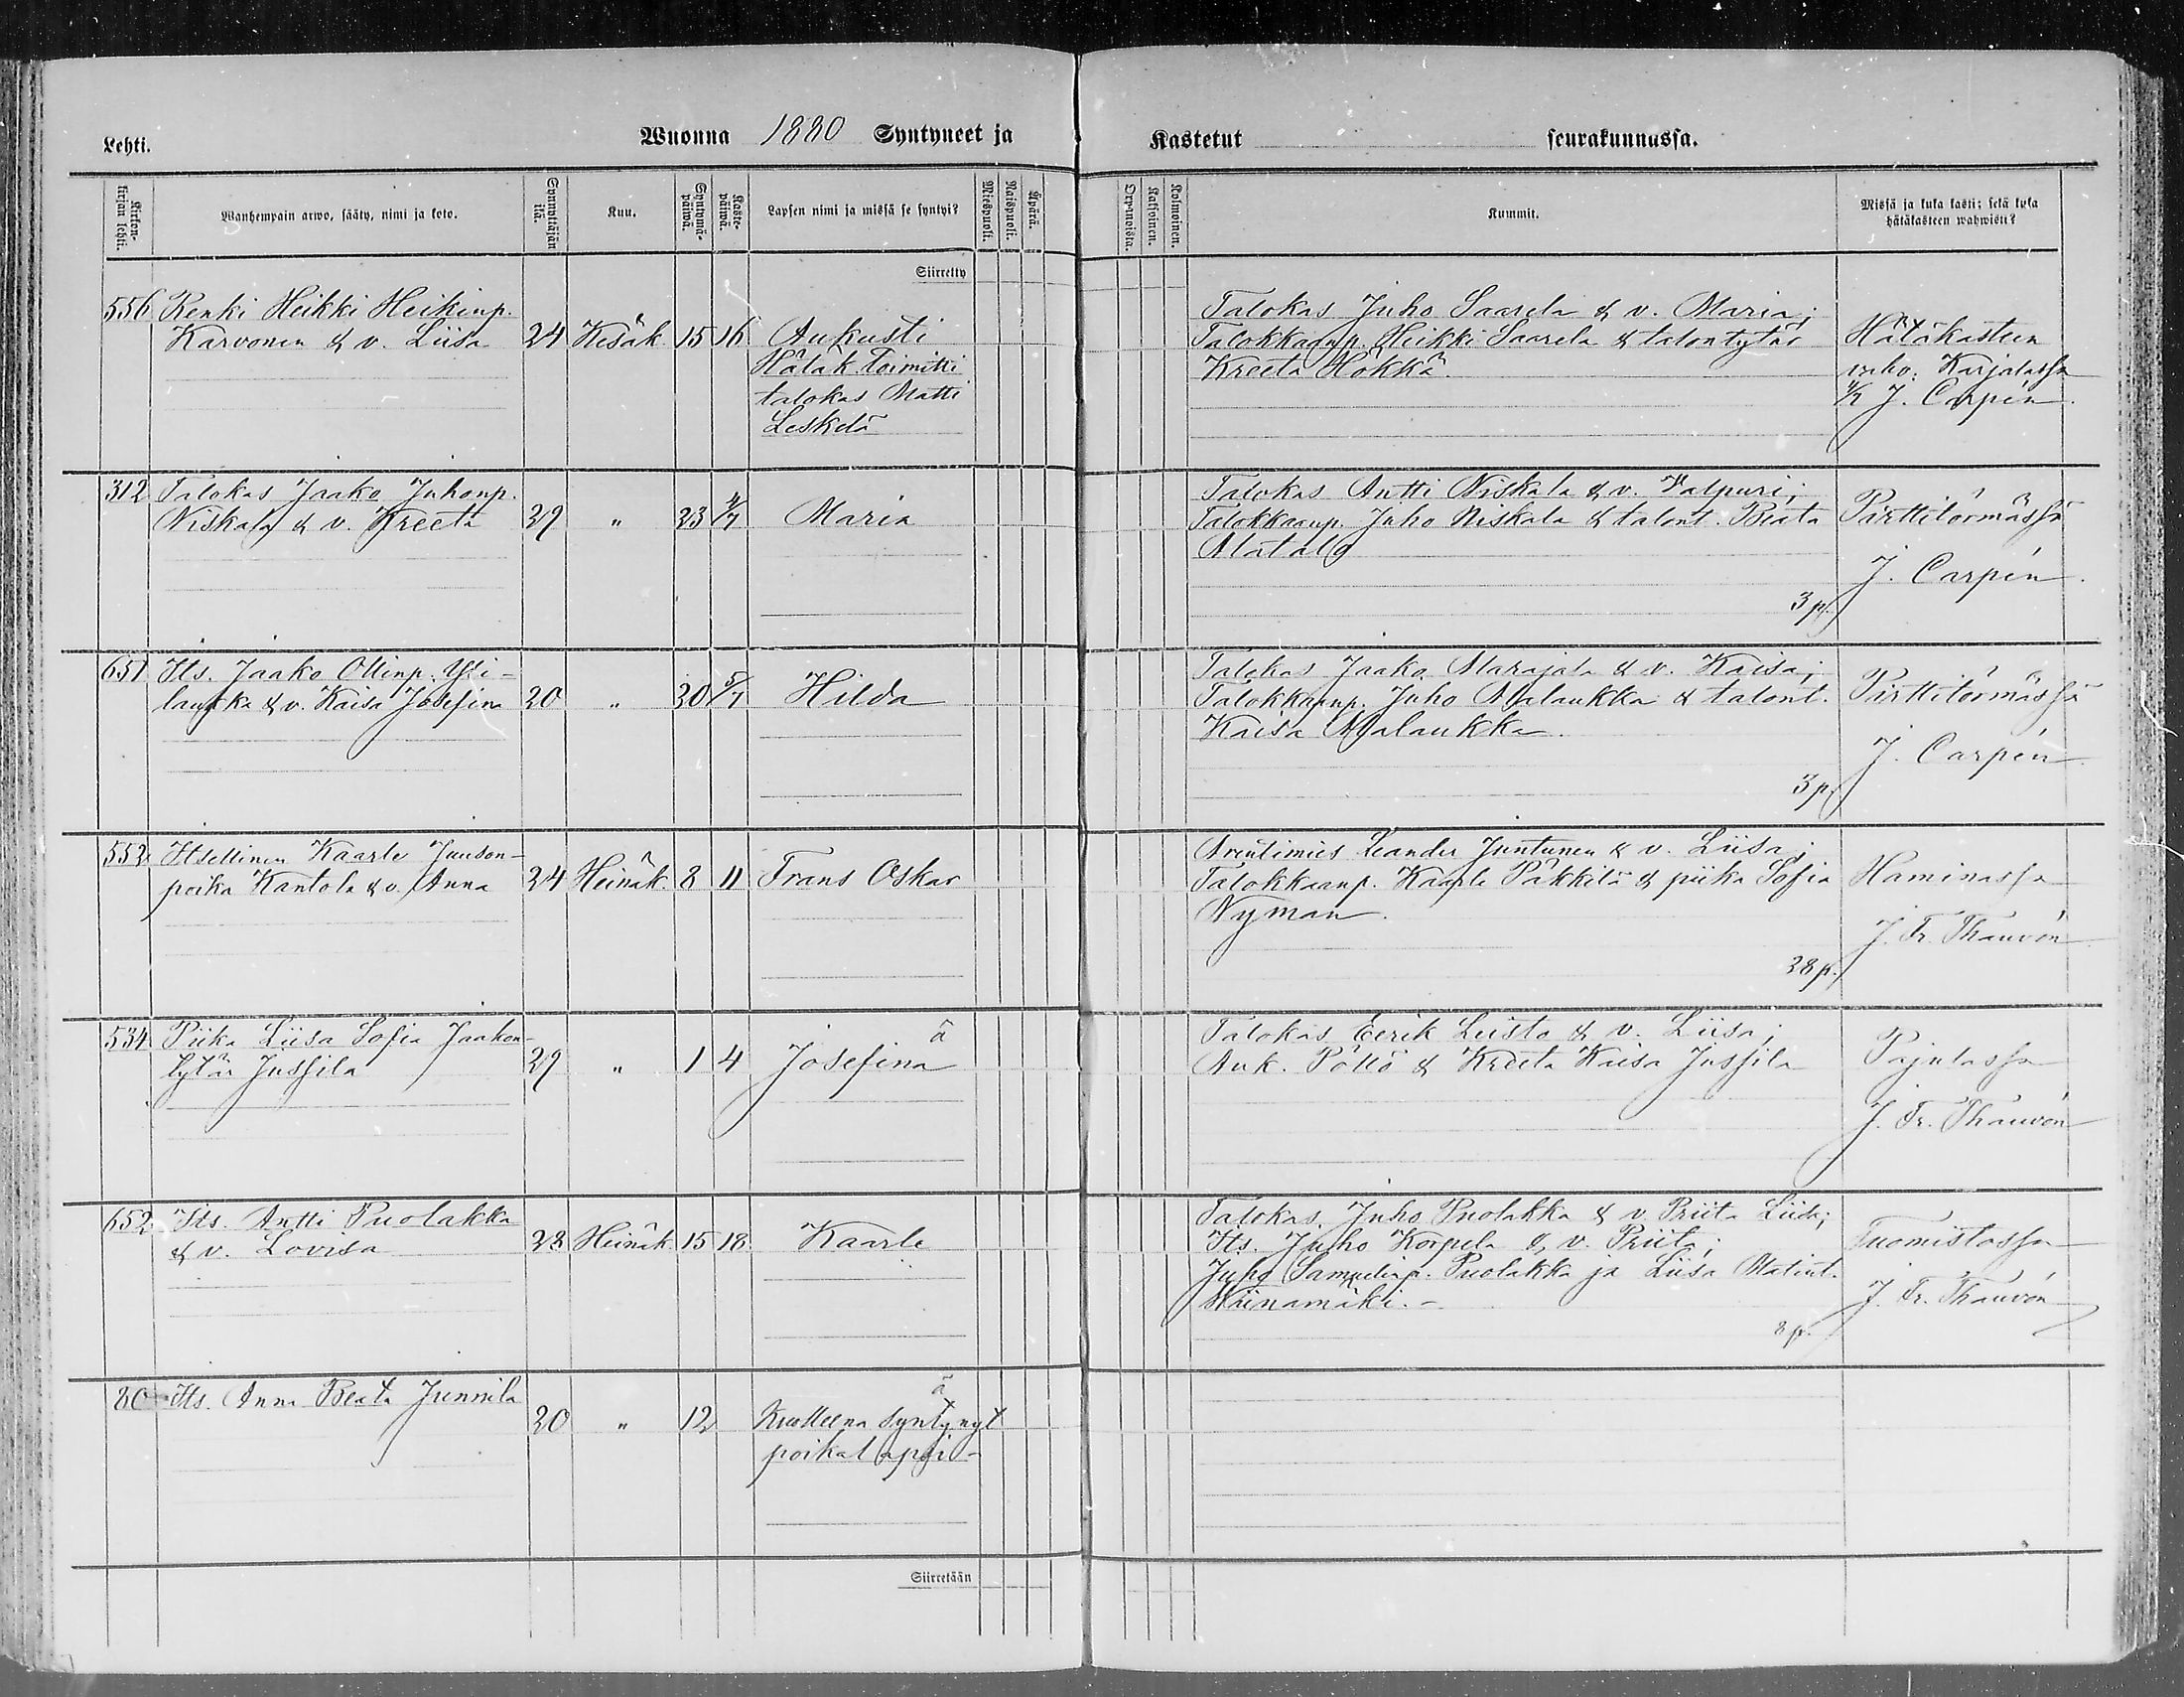 Lehti.
Wuonna 1880 Syntyneet ja
Kastetut seurakunnassa.
Kirkonkirjan lehti.
Wanhempain arwo, sääty, nimi ja koto.
Synnyttäjän ikä.
Kuu.
Syntymäpäiwä.
Kastepäiwä.
Lapsen nimi ja missä se syntyi?
Miespuoli.
Naispuoli.
Äpärä.
Kaksoinen.
Kolmoinen.
Kummit.
Missä ja kuka kasti; sekä kuka
hätäkasteen wahwisti?
Siirretty
556 Renki Heikki Heikinp.
Karvonen & v. Liisa 24 Kesäk. 15 16 Aukusti
Hätäk. Toimitti
talokas Matti
Leskelä
Talokas Juho Saarela & v. Maria;
Talokkaanp. Heikki Saarela & talontytär
Kreeta Hökkä.
Hätäkasteen
vaho. Karjalassa
4/7 J. Carpén.
312 Talokas Jaako Juhonp.
Niskala & v. Kreeta 29 " 23 4/7 Maria
Talokas Antti Niskala & v. Valpuri;
Talokkaanp. Juho Niskala & talont. Beata
Alatalo
3 p.
Pirttitörmässä
J. Carpén.
651 Its. Jaako Ollinp. Yli-
laukka & v. Kaisa Josefina 20 " 30 5/7 Hilda
Talokas Jaako Marajala & v. Kaisa;
Talokkaanp. Juho Alalaukka & talont.
Kaisa Alalaukka.
3 p.
Pirttitörmässä
J. Carpén
552 Itsellinen Kaarle Juuson-
poika Kantola & v. Anna 24 Heinäk. 8 11 Frans Oskar
Arentimies Leander Juntunen & v. Liisa;
Talokkaanp. Kaarle Pakkila & piika Sofia
Nyman.
28 p.
Haminassa
J. Fr. Thauvón
534 Piika Liisa Sofia Jaakon-
tytär Jussila 29 " 1 4 Josefina
ä
Talokas Eerik Leisto & v. Liisa;
Auk. Pöllö & Kreeta Kaisa Jussila
Pajulassa
J. Fr. Thauvón
652 Its. Antti Puolakka
& v. Lovisa 28 Heinäk. 15 18 Kaarle
Talokas. Juho Puolakka & v. Priita Liisa;
Its. Juho Korpela & v. Priita;
Juho Samuelinp. Puolakka ja Liisa Matint.
Kiinamäki. -
8 p.
Tuomistossa
J. Fr. Thauvón
80 Its. Anna Beata Junnila
20 " 12
ä
Kuolleena syntynyt
poikalapsi -
Siirretään